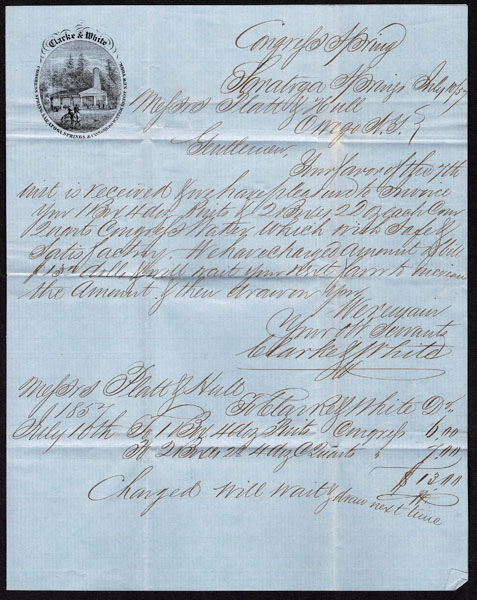 Clarke & White
Congress Spring
Saratoga Springs July 10/57
Messrs Platt & Hull
Owego N.Y.
Gentlemen,
Your favor of the 7th
inst is received & we have pleasure to Invoice
You 1 Box 4 doz Pints & 2 Boxes 2 Doz each Com
Quarts Congress Water which wish Safe &
Satisfactory. We have charged Amount of bill
$13 & will wait your next favor to increase
the Amount & then draw on You
We remain
Your Obt Servants
Clarke & White
Messrs Platt & Hull
1857 To Clarke & White Dr
July 10th To 1 Box 4 doz Pints Congress 6.00
To 2 Boxes 2 & 4 doz C Quarts " 7.00
$13.00
Charged will wait & draw next time